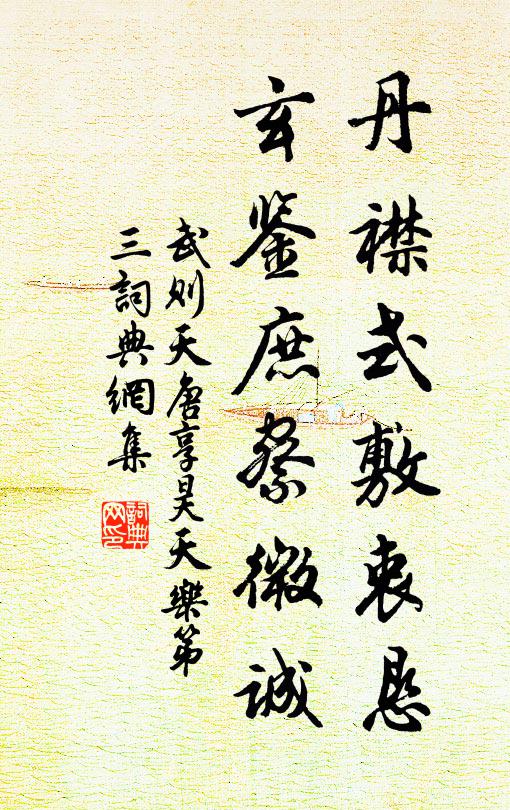 丹襟式敷衷恳
玄鉴庶察微诚
武则天唐享昊天樂第
三詞典網集
詞典网印